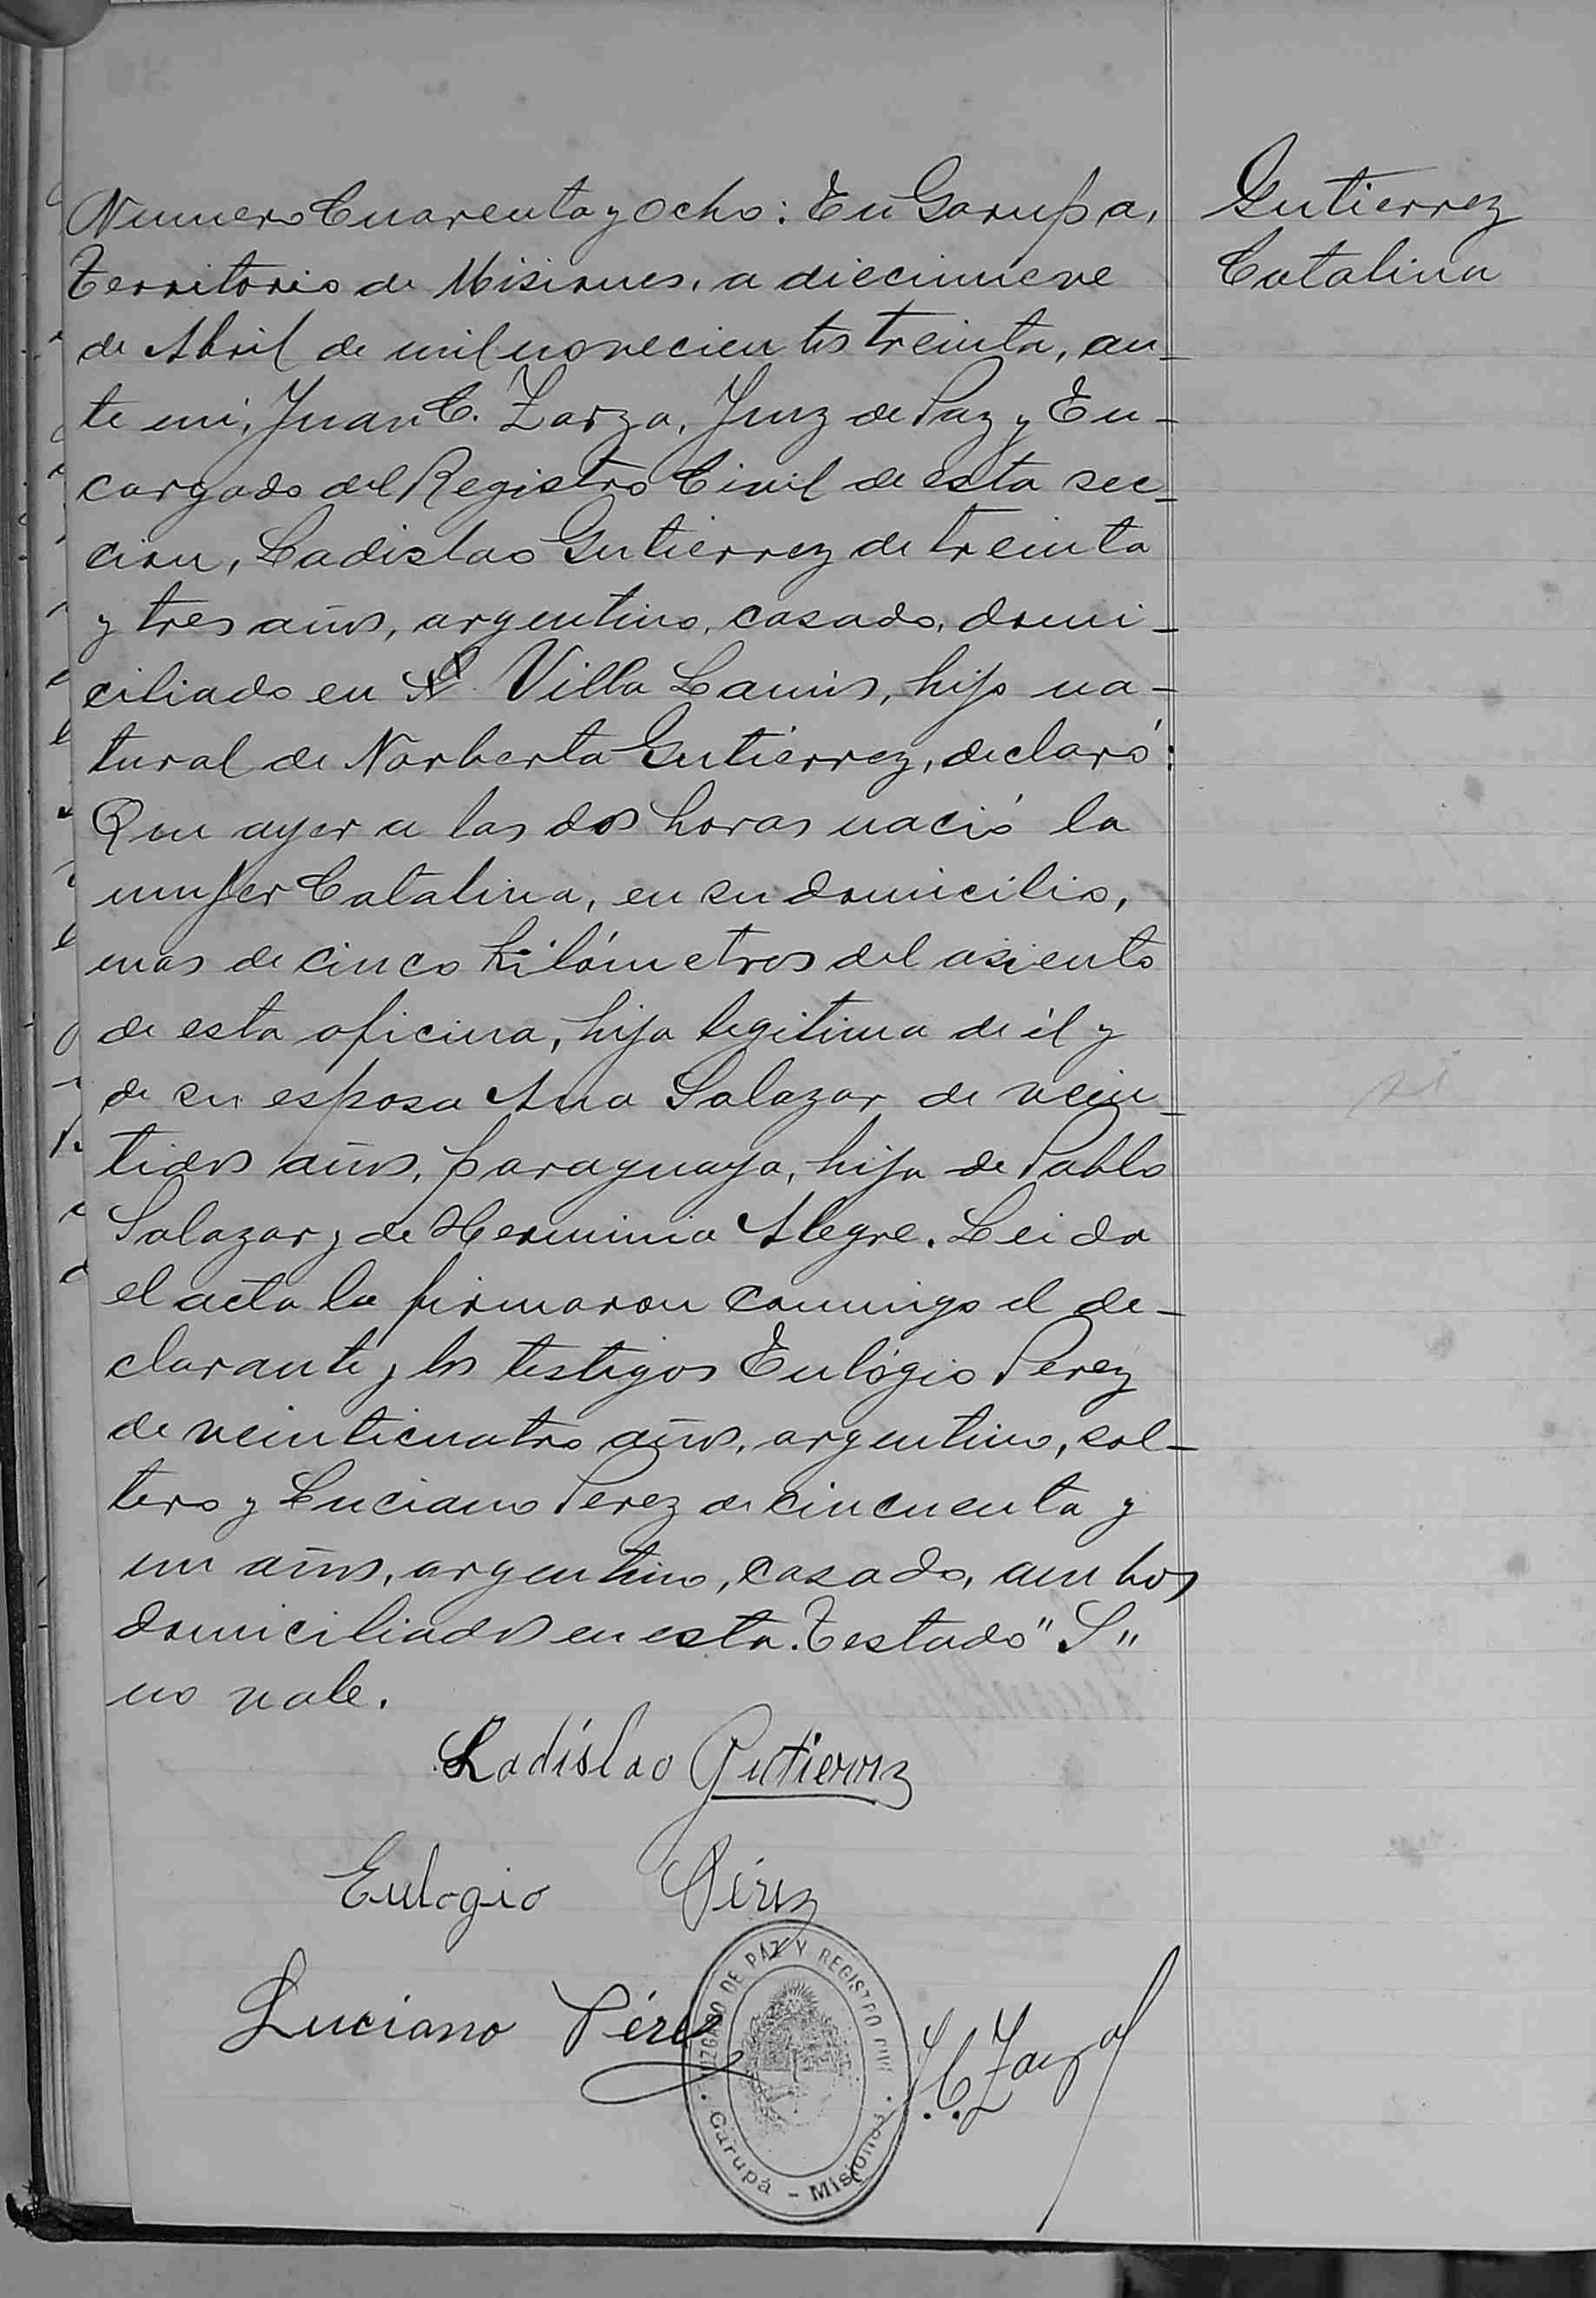 Numero Cuarenta y Ocho: En Garupa,
Territorio de Misiones, a diecinueve
de Abril de mil novecientos treinta, an-
te mi, Juan C. Zarza, Juez de Paz y En-
cargado del Registro Civil de esta sec-
cion, Ladislao Gutierrez de treinta
y tres años, argentino, casado, domi-
ciliado en S Villa Lanus, hijo na-
tural de Norberta Gutierrez, declaró:
Que ayer a las dos horas nació la
mujer Catalina, en su domicilio,
mas de cinco kilómetros del asiento
de esta oficina, hija legitima de él y
de su esposa Ana Salazar de vein-
tidos años, paraguaya, hija de Pablo
Salazar y de Herminia Alegre. Leida
el acta la firmaron conmigo el de-
clarante y los testigos Eulógio Perez
de veinticuatro años, argentino, sol-
tero y Luciano Perez de cincuenta y
un años, argentino, casado, ambos
domiciliados en esta. Testado "S"
no vale.
Gutierrez
Catalina
Ladislao Gutierrez
Eulogio Pérez
Luciano Pérez
J. C. Zarza
JUZGADO DE PAZ Y REGISTRO CIVIL
Garupá - Misiones